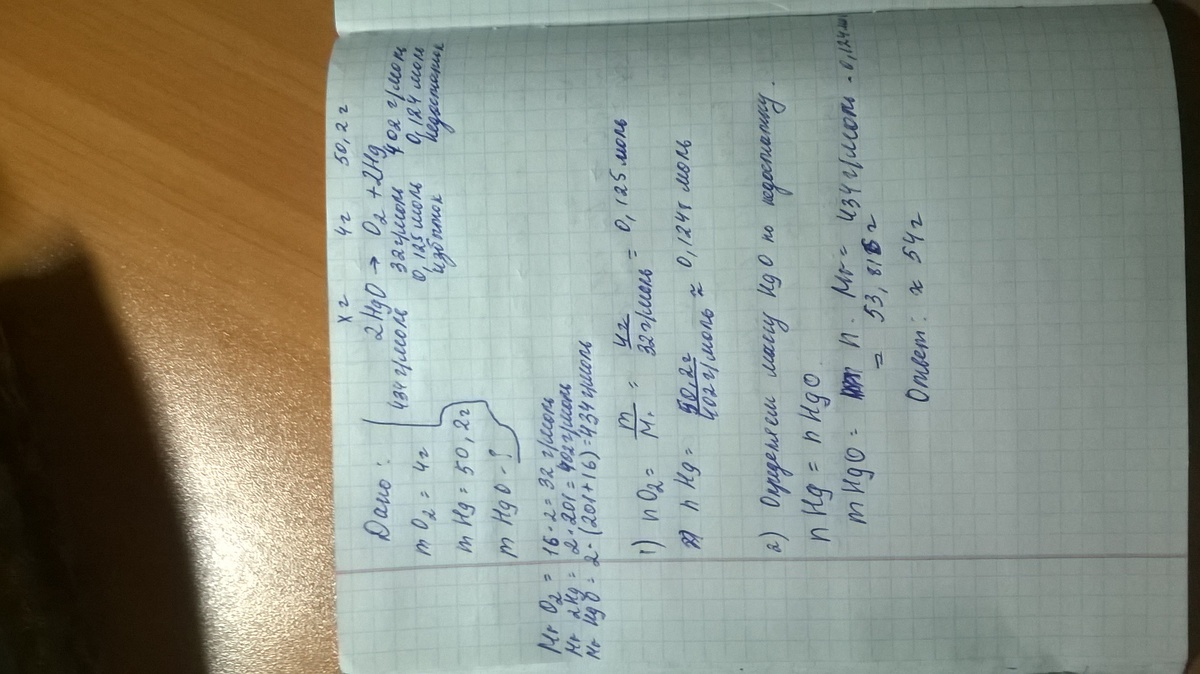 Дано:
m O₂ = 4г
m Hg = 50,2г
m HgO - ?
x г 4г 50,2г
2HgO → O₂ + 2Hg
434 г/моль 32 г/моль 402 г/моль
0,125 моль 0,124 моль
избыток недостаток
Mr O₂ = 16·2 = 32 г/моль
Mr 2Hg = 2·201 = 402 г/моль
Mr HgO = 2·(201+16) = 434 г/моль
1) n O₂ = m/M = 4г/32 г/моль = 0,125 моль
n Hg = 50,2г/402 г/моль ≈ 0,124 моль
2) Определяем массу HgO по недостатку.
n Hg = n HgO
m HgO = n · Mr = 434 г/моль · 0,124
= 53,816 г
Ответ: ≈ 54г